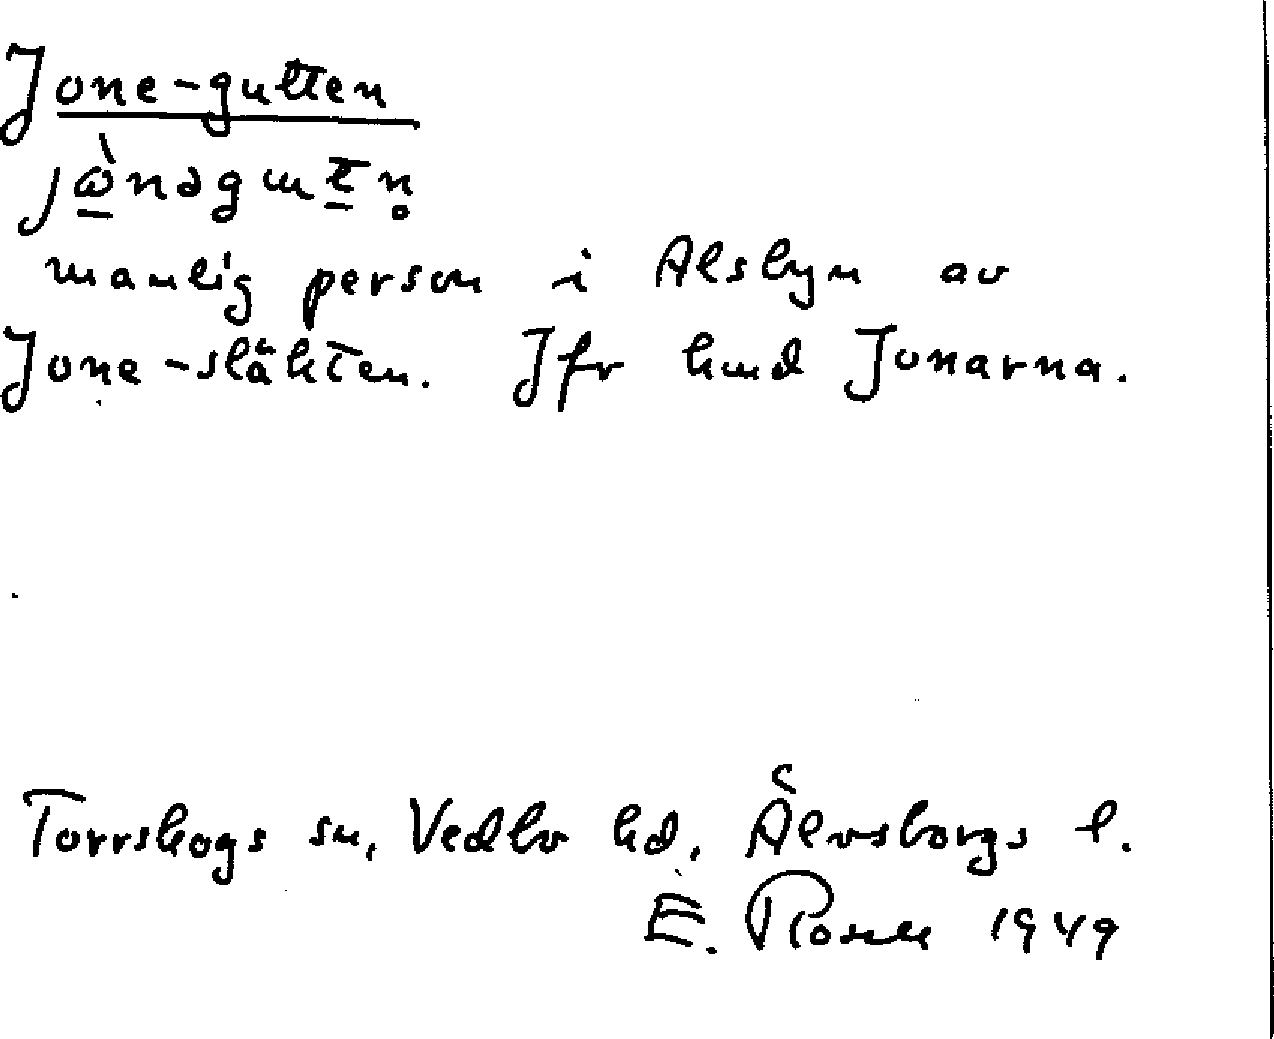 Jone-gutten
jὼnəgɯt̲n̥
manlig person i Alsbyn av
Jone-släkten. Jfr hmd Jonarna.
Torrskogs sn, Vedbo hd, Älvsborgs l.
E. Rosell 1949